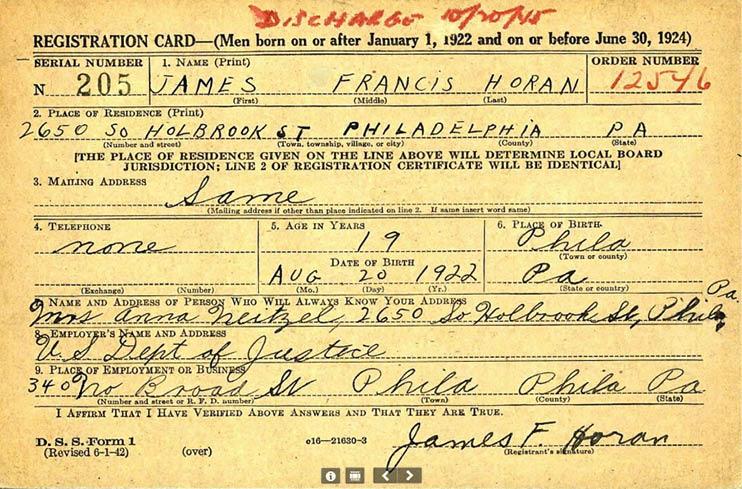 DISCHARGE 10/20/45
REGISTRATION CARD—(Men born on or after January 1, 1922 and on or before June 30, 1924)
SERIAL NUMBER 1. NAME (Print) ORDER NUMBER
N 205 JAMES FRANCIS HORAN 12546
(First) (Middle) (Last)
2. PLACE OF RESIDENCE (Print)
2650 SO HOLBROOK ST PHILADELPHIA PA
(Number and street) (Town, township, village, or city) (County) (State)
[THE PLACE OF RESIDENCE GIVEN ON THE LINE ABOVE WILL DETERMINE LOCAL BOARD
JURISDICTION; LINE 2 OF REGISTRATION CERTIFICATE WILL BE IDENTICAL]
3. MAILING ADDRESS
Same
(Mailing address if other than place indicated on line 2. If same insert word same)
4. TELEPHONE 5. AGE IN YEARS 6. PLACE OF BIRTH.
none 19 Phila
DATE OF BIRTH (Town or county)
AUG 20 1922 Pa
(Exchange) (Number) (Mo.) (Day) (Yr.) (State or country)
7. NAME AND ADDRESS OF PERSON WHO WILL ALWAYS KNOW YOUR ADDRESS
Mrs Anna Neitzel, 2650 So Holbrook St, Phila, Pa.
8. EMPLOYER'S NAME AND ADDRESS
U S Dept of Justice
9. PLACE OF EMPLOYMENT OR BUSINESS
340 No Broad St Phila Phila Pa
(Number and street or R. F. D. number) (Town) (County) (State)
I AFFIRM THAT I HAVE VERIFIED ABOVE ANSWERS AND THAT THEY ARE TRUE.
D. S. S. Form 1
(Revised 6-1-42) (over) 16—21630-3 James F. Horan
(Registrant's signature)